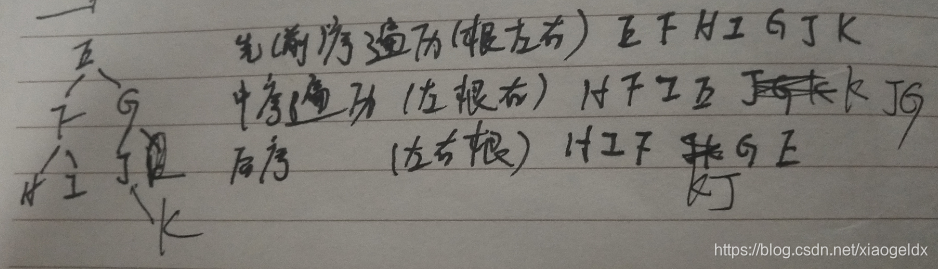 先(前)序遍历(根左右) E F H I G J K
中序遍历(左根右) H F I E K JG
后序 (左右根) H I F KJ G E
E
F G
H I J
K
https://blog.csdn.net/xiaogeldx